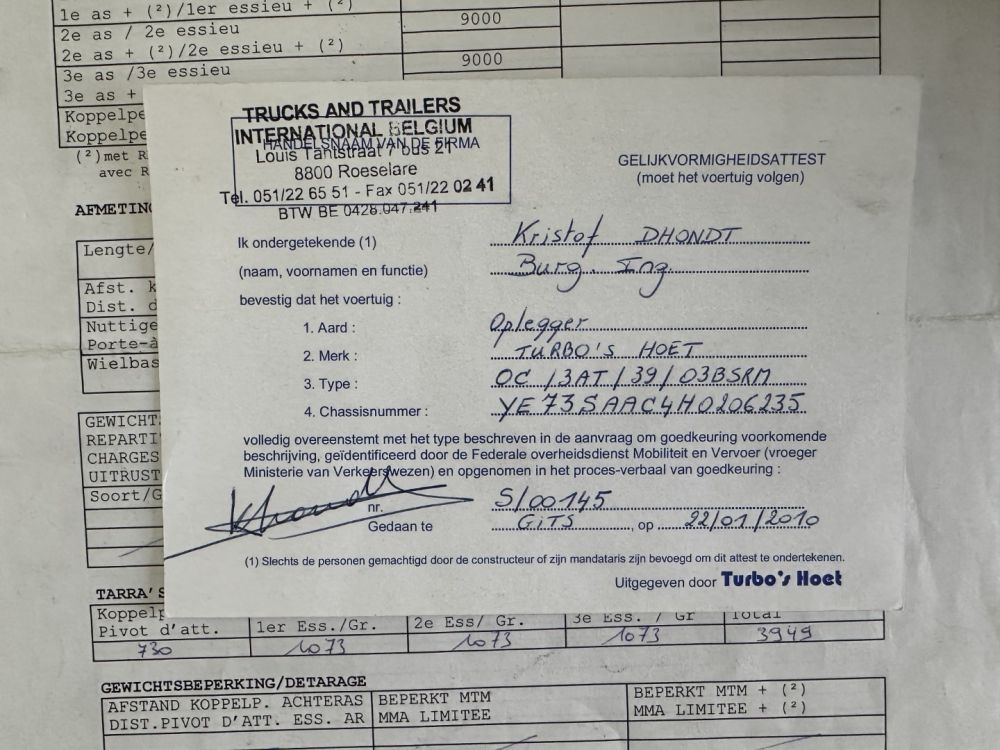 1e as + (²)/1er essieu + (²)
2e as / 2e essieu
9000
2e as + (²)/2e essieu + (²)
3e as /3e essieu
9000
3e as +
Koppelpe
Koppelpe
(²)met R
avec R
AFMETING
Lengte/
Afst. k
Dist. d
Nuttige
Porte-à
Wielbas
GEWICHT
REPARTI
CHARGES
UITRUST
Soort/G
TRUCKS AND TRAILERS
INTERNATIONAL BELGIUM
HANDELSNAAM VAN DE FIRMA
Louis Tantstraat 7 bus 21
8800 Roeselare
Tel. 051/22 65 51 - Fax 051/22 02 41
BTW BE 0428.047.241
GELIJKVORMIGHEIDSATTEST
(moet het voertuig volgen)
Ik ondergetekende (1) Kristof DHONDT
(naam, voornamen en functie) Burg. Ing.
bevestig dat het voertuig :
1. Aard : Oplegger
2. Merk : TURBO'S HOET
3. Type : OC /3AT/39/03BSRM
4. Chassisnummer : YE73SAAC4H0206235
volledig overeenstemt met het type beschreven in de aanvraag om goedkeuring voorkomende
beschrijving, geïdentificeerd door de Federale overheidsdienst Mobiliteit en Vervoer (vroeger
Ministerie van Verkeerswezen) en opgenomen in het proces-verbaal van goedkeuring :
nr. S/00145
Gedaan te GITS, op 22/01/2010
(1) Slechts de personen gemachtigd door de constructeur of zijn mandataris zijn bevoegd om dit attest te ondertekenen.
Uitgegeven door Turbo's Hoet
TARRA'S
Koppelp
Pivot d'att. 1er Ess./Gr. 2e Ess/ Gr. 3e Ess. / Gr Total
730 1073 1073 1073 3949
GEWICHTSBEPERKING/DETARAGE
AFSTAND KOPPELP. ACHTERAS BEPERKT MTM BEPERKT MTM + (²)
DIST.PIVOT D'ATT. ESS. AR MMA LIMITEE MMA LIMITEE + (²)